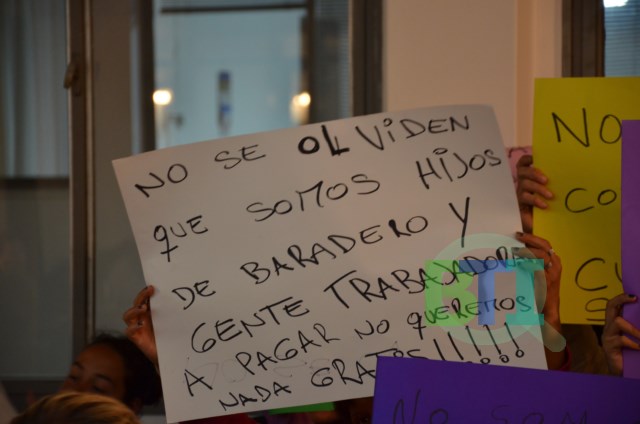 NO SE OLVIDEN
QUE SOMOS HIJOS
DE BARADERO Y
GENTE TRABAJADORA
A PAGAR NO QUEREMOS
NADA GRATIS!!!!!!
NO
CO
BTI